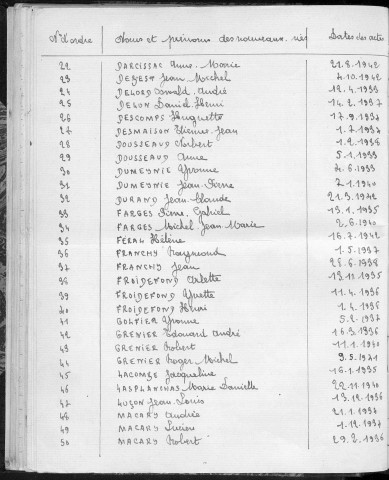 N° d'ordre Noms et prénoms des nouveaux-nés Dates des actes
22 DARCISSAC Anne-Marie 21.8.1942
23 DEZEST Jean Michel 7.10.1942
24 DELORD Oswald André 12.4.1933
25 DELON Daniel Henri 14.2.1937
26 DESCOMPS Huguette 17.9.1937
27 DESMAISON Etienne Jean 1.7.1937
28 DOUSSEAUD Norbert 1.2.1938
29 DOUSSEAUD Anne 5.1.1933
30 DUMEYNIE Yvonne 7.6.1933
31 DUMEYNIE Jean Pierre 7.1.1940
32 DURAND Jean Claude 21.3.1942
33 FARGES Pierre Gabriel 13.1.1935
34 FARGES Michel Jean Marie 2.6.1940
35 FERAL Hélène 16.7.1942
36 FRANCHY Raymond 1.5.1937
37 FRANCHY Jean 28.6.1938
38 FROIDEFOND Arlette 13.11.1935
39 FROIDEFOND Yvette 11.4.1936
40 FROIDEFOND Henri 1.4.1936
41 GOLFIER Yvonne 5.2.1937
42 GRENIER Edouard André 16.3.1936
43 GRENIER Robert 11.1.1940
44 GRENIER Roger Michel 9.5.1941
45 LACOMBE Jacqueline 16.1.1935
46 LASPLANCHAS Marie Danielle 22.11.1940
47 LUÇON Jean Louis 13.12.1936
48 MACARY Andrée 21.1.1937
49 MACARY Lucien 1.12.1937
50 MACARY Robert 29.2.1936